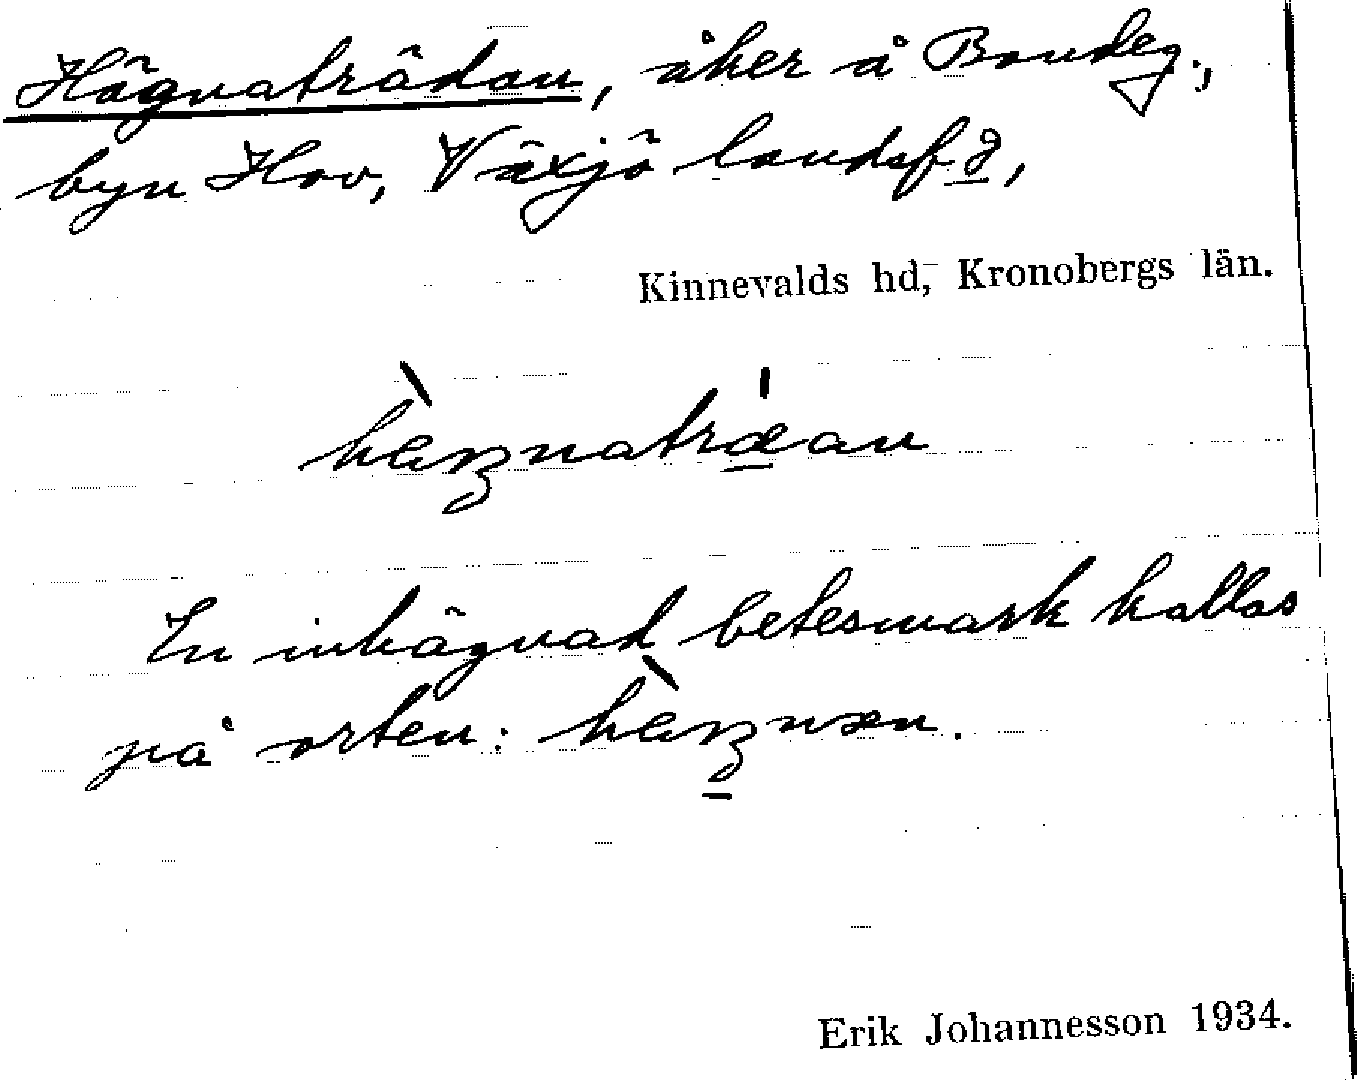 Hägnaträdan, åker å Bondeg.,
byn Hov, Växjö landsf d,
Kinnevalds hd, Kronobergs län.
En inhägnad betesmark kallas
på orten:
Erik Johannesson 1934.